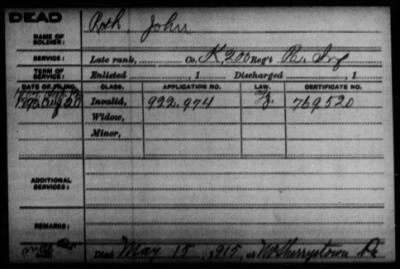 DEAD
NAME OF SOLDIER: Roth, John
SERVICE: Late rank, Co. K, 200 Reg't Pa. Inf
TERM OF SERVICE: Enlisted , 1 Discharged , 1
DATE OF FILING. CLASS. APPLICATION NO. LAW. CERTIFICATE NO.
1890 Aug 20 Invalid, 922.974 769520
Widow,
Minor,
ADDITIONAL SERVICES:
REMARKS:
Died May 15, 1915, at McSherrystown Pa